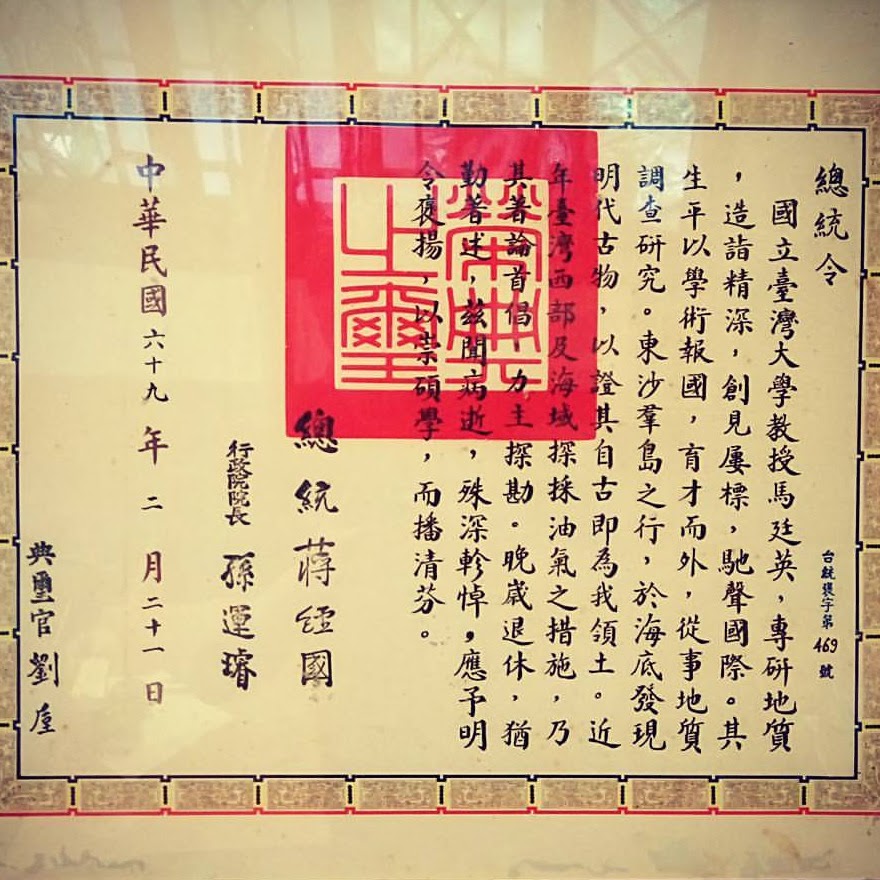 總統令
國立臺灣大學教授馬廷英，專研地質
，造詣精深，創見屢標，馳聲國際。其
生平以學術報國，育才而外，從事地質
調查研究。東沙羣島之行，於海底發現
明代古物，以證其自古即為我領土。近
年臺灣西部及海域探採油氣之措施，乃
其著論首倡，力主探勘。晚歲退休，猶
勤著述，茲聞病逝，殊深軫悼，應予明
令褒揚，以崇碩學，而播清芬。
總統 蔣經國
行政院院長 孫運璿
中華民國六十九年二月二十一日
典璽官 劉垕
台統褒字第469號
榮典之璽